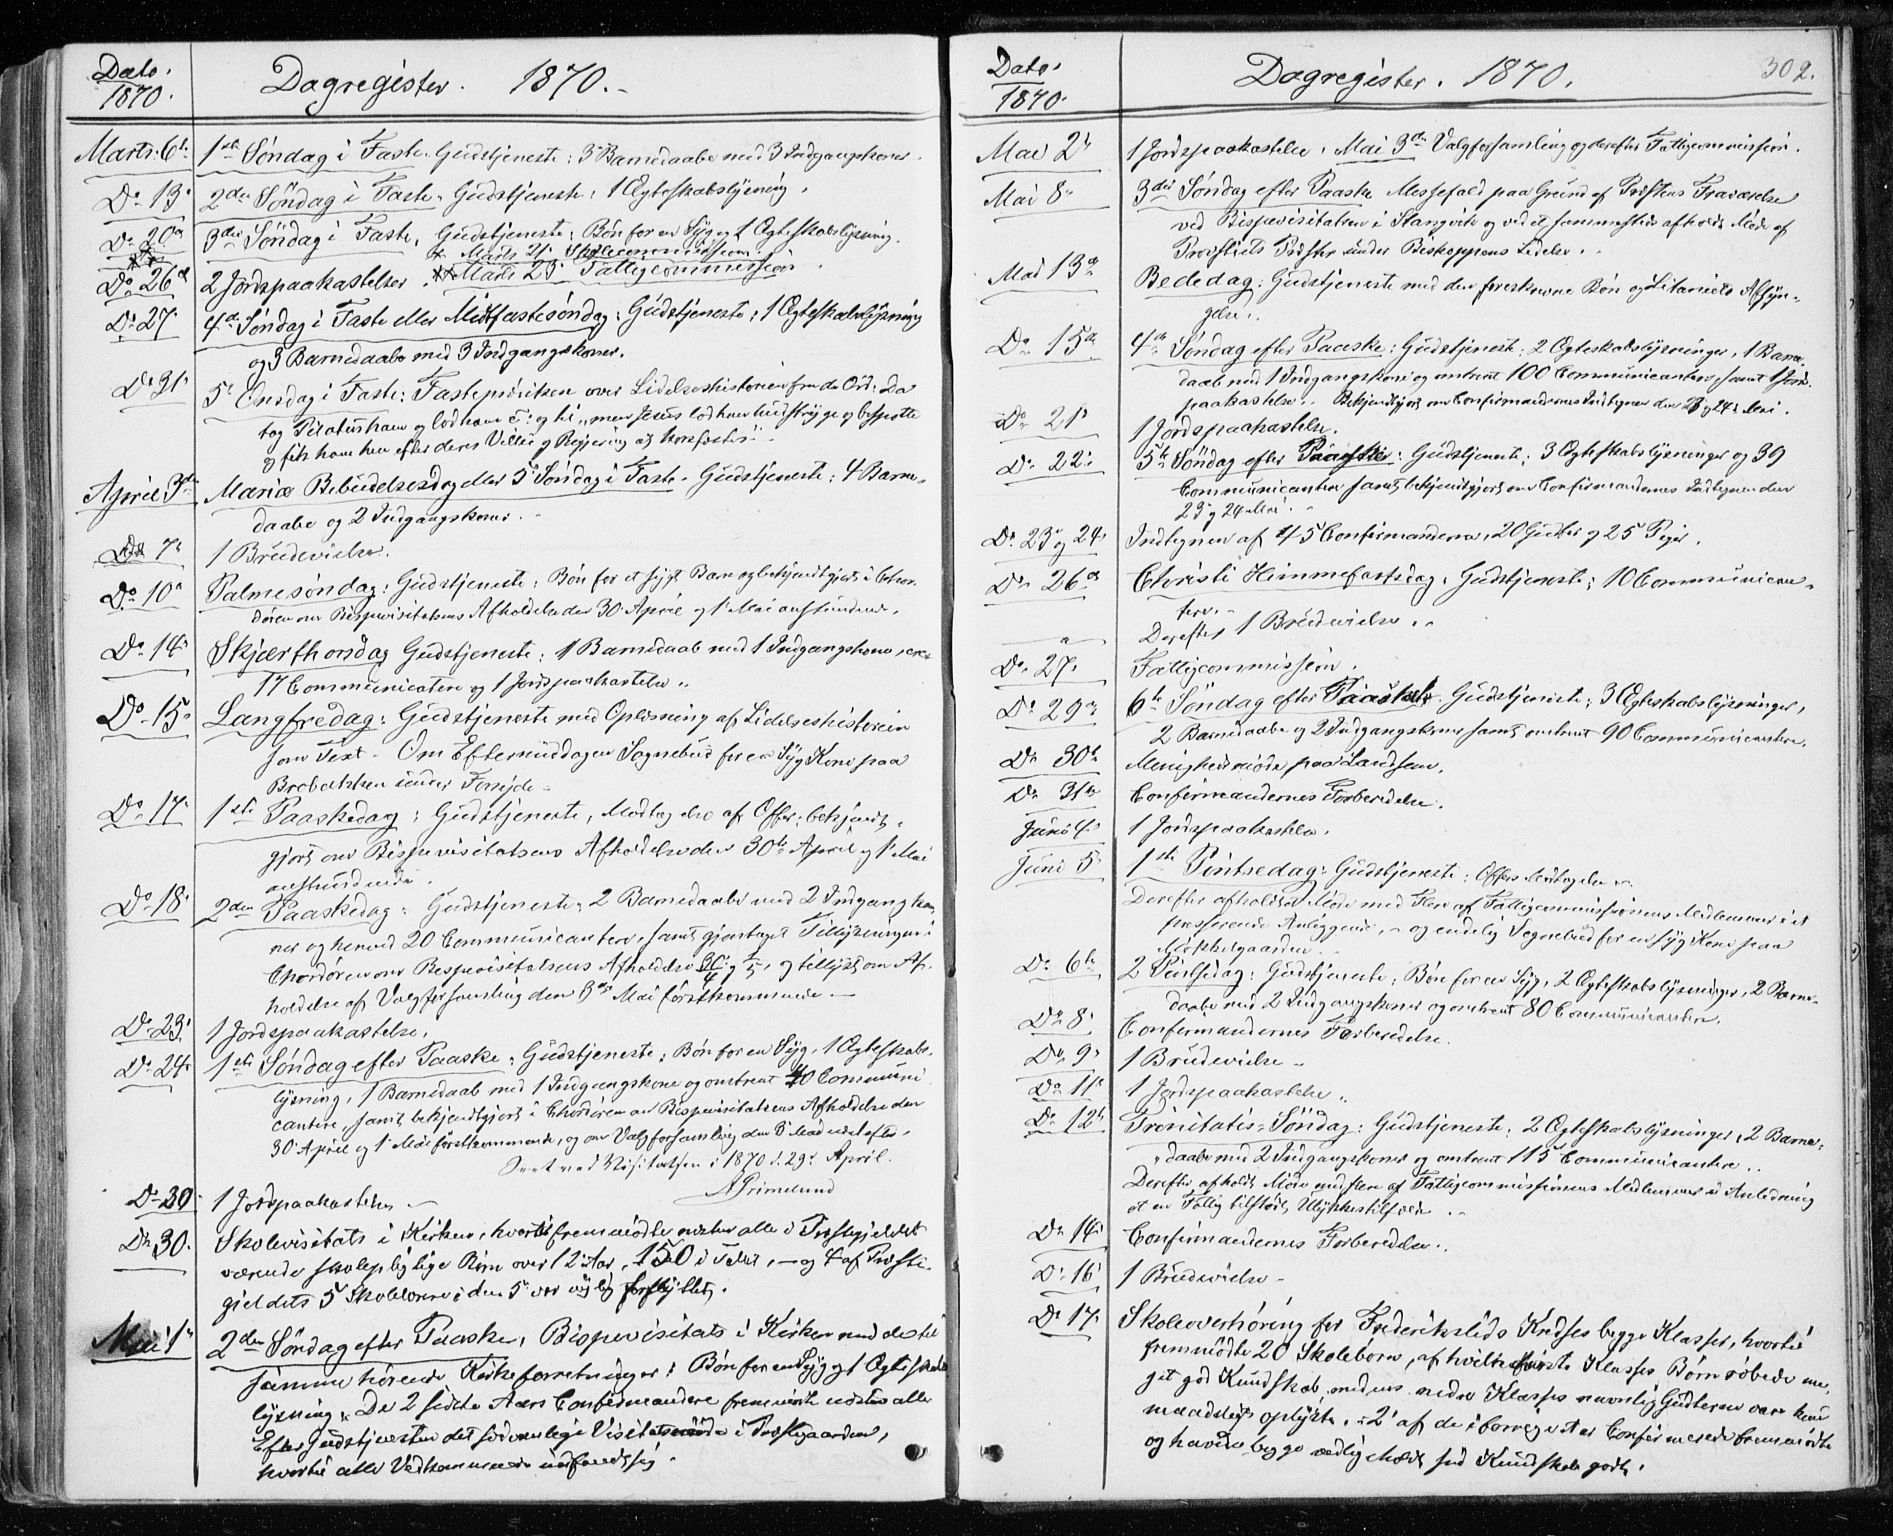 Dato.
1870.
Dagregister. 1870.-
Marts. 6te 1ste Søndag i Faste. Gudstjeneste: 3 Barnedaabe med 3 Indgangskoner.
Do 13de 2den Søndag i Faste. Gudstjeneste: 1 Ægteskabslysning.
Do 20de 3die Søndag i Faste. Gudstjeneste: Bøn for en Syg og 1 Ægteskabslysning.
Marts 21. Skolecommission.
Do 26de 2 Jordspaakastelser. Marts 25. Fattigcommission.
Do 27. 4de Søndag i Faste eller Midtfastesøndag: Gudstjeneste; 1 Ægteskabslysning
og 3 Barnedaabe med 3 Indgangskoner.
Do 31. 5te Onsdag i Faste: Fasteprædiken over Lidelseshistorien fra de Ord: Da
tog Pilatus ham og lod ham
og fik ham hen efter deres Villie og Begjering at korsfæstes".
April 3de Mariæ Bebudelsesdag eller 5te Søndag i Faste. Gudstjeneste: 4 Barne-
daabe og 2 Indgangskoner.
Do 7de 1 Brudevielse.
Do 10de Palmesøndag: Gudstjeneste: Bøn for et sygt Barn og bekjendtgjort i Chor-
døren om Bispevisitatsens Afholdelse den 30 April og 1 Mai anstundende.
Do 14. Skjærthorsdag Gudstjeneste: 1 Barnedaab med 1 Indgangskone,
17 Communicantere og 1 Jordspaakastelse.
Do 15. Langfredag: Gudstjeneste med Oplæsning af Lidelseshistorien
som Text. Om Eftermiddagen Sognebud for en Syg Kone paa
Brobakken under Forsøide.
Do 17. 1ste Paaskedag: Gudstjeneste, Modtagelse af Offer, bekjendt-
gjort om Bispevisitatsens Afholdelse den 30te April og 1 Mai
anstundende.
Do 18. 2den Paaskedag: Gudstjeneste; 2 Barnedaabe med 2 Indgangsko-
ner og henved 20 Communicantere, samt gjentaget Tillysningen i
Chordøren om Bispevisitatsens Afholdelse 30/4 og 1/5, og tillyst om Af-
holdelse af Valgforsamling den 3die Mai førstkommende.
Do 23. 1 Jordspaakastelse.
Do 24. 1ste Søndag efter Paaske: Gudstjeneste: Bøn for en Syg, 1 Ægteskabs-
lysning, 1 Barnedaab med 1 Indgangskone og omtrent 40 Communi-
cantere, samt bekjendtgjort i Chordøren om Bispevisitatsens Afholdelse den
30 April og 1 Mai førstkommende, og om Valgforsamling den 3 Mai næstefter.
Seet ved Visitatsen i 1870 d. 29de April.
AGrimelund
Do 30. 1 Jordspaakastelse.
Do 30. Skolevisitats i Kirken, hvortil fremmødte næsten alle i Præstegjeldet
værende skolepligtige Børn over 12 Aar, 150 i Tallet, - og 4 af Præste-
gjeldets 5 Skolelærere; den 5te var nylig forflyttet.
Mai 1ste 2den Søndag efter Paaske, Bispevisitats i Kirken med de til
samme hørende Kirkeforretninger: Bøn for en Syg og 1 Ægteskabs-
lysning. De 2 sidste Aars Confirmandere fremmødte næsten alle
Efter Gudstjenesten det sædvanlige Visitatsmøde i Præstegaarden,
hvortil alle Vedkommende indfandt sig.
302.
Dato.
1870.
Dagregister. 1870.
Mai 2. 1 Jordspaakastelse. Mai 3die Valgforsamling og derefter Fattigcommission.
Mai 8. 3die Søndag efter Paaske Messefald paa Grund af Præstens Fraværelse
ved Bispevisitatsen i Stangvik og ved et sammesteds afholdt Møde af
Provstiets Præster under Biskoppens Ledelse.
Mai 13de Bededag: Gudstjeneste med den foreskrevne Bøn og Litaniets Afsyn-
gelse.
Do 15de 4de Søndag efter Paaske: Gudstjeneste: 2 Ægteskabslysninger, 1 Barne-
daab med 1 Indgangskone og omtrent 100 Communicantere, samt 1 Jords-
paakastelse. Bekjendtgjort om Confirmandernes Indtegnen den 23 og 24 Mai.
Do 21. 1 Jordspaakastelse.
Do 22. 5te Søndag efter Paaske: Gudstjeneste: 3 Ægteskabslysninger og 39
Communicantere samt bekjendtgjort om Confirmandernes Indtegnen den
23 og 24 Mai.
Do 23 og 24. Indtegnen af 45 Confirmandere, 20 Gutter og 25 Piger.
Do 26de Christi Himmelfartsdag. Gudstjeneste: 10 Communican-
tere.
Derefter 1 Brudevielse.
Do 27. Fattigcommission.
Do 29de 6te Søndag efter Paaske. Gudstjeneste: 3 Ægteskabslysninger,
2 Barnedaabe og 2 Indgangskoner samt omtrent 90 Communicantere.
Do 30te Menighedsmøde paa Landsem.
Do 31te Confirmandernes Forberedelse.
Juni 4. 1 Jordspaakastelse.
Juni 5. 1ste Pintsedag: Gudstjeneste: Offers Modtagelse.
Derefter afholdtes Møde med Flere af Fattigcommissionens Medlemmer i et
presserende Anliggende, - og endelig Sognebud for en syg Kone paa
Mækkelgaarden.
Do 6te 2 Pintsedag: Gudstjeneste: Bøn for en Syg, 2 Ægteskabslysninger, 2 Barne-
daabe med 2 Indgangskoner og omtrent 80 Communicantere.
Do 8. Confirmandernes Forberedelse.
Do 9. 1 Brudevielse.
Do 11. 1 Jordspaakastelse.
Do 12te Trinitatis-Søndag: Gudstjeneste: 2 Ægteskabslysninger, 2 Barne-
daabe med 2 Indgangskoner og omtrent 115 Communicantere.
Derefter afholdt Møde med flere af Fattigcommissionens Medlemmer i Anledning
af en Fattig tilstødt Ulykkestilfælde.
Do 14. Confirmandernes Forberedelse.
Do 16. 1 Brudevielse.
Do 17. Skoleoverhøring for Frederikslids Kredses begge Klasser, hvortil
fremmødte 20 Skolebørn, af hvilke første Klasses Børn røbede me-
get god Kundskab, medens nedre Klasses navnlig Gutterne vare kun
maadeligt oplyste. 2 af de i forrige Aar Confirmerede fremmødte
og havde begge vedligeholdt sin Kundskab godt.